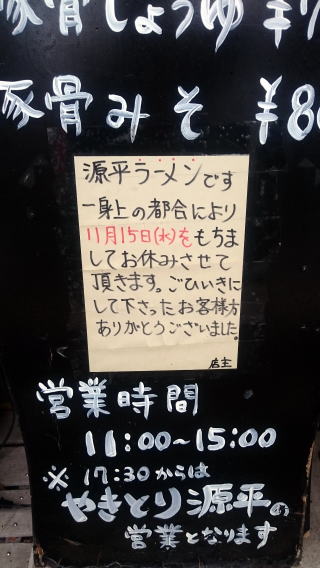 豚骨しょうゆ ¥7
豚骨みそ ¥8
源平ラーメンです
一身上の都合により
11月15日(水)をもちま
してお休みさせて
頂きます。ごひいきに
して下さったお客様方
ありがとうございました。
店主
営業時間
11:00~15:00
※17:30からは
やきとり源平の
営業となります